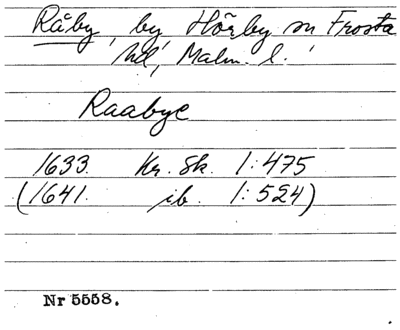 Råby, by, Hörby sn Frosta
hd, Malm. l.
Raabye
1633. Kr. Sk. 1:475
(1641. ib. 1:524)
Nr 5558.